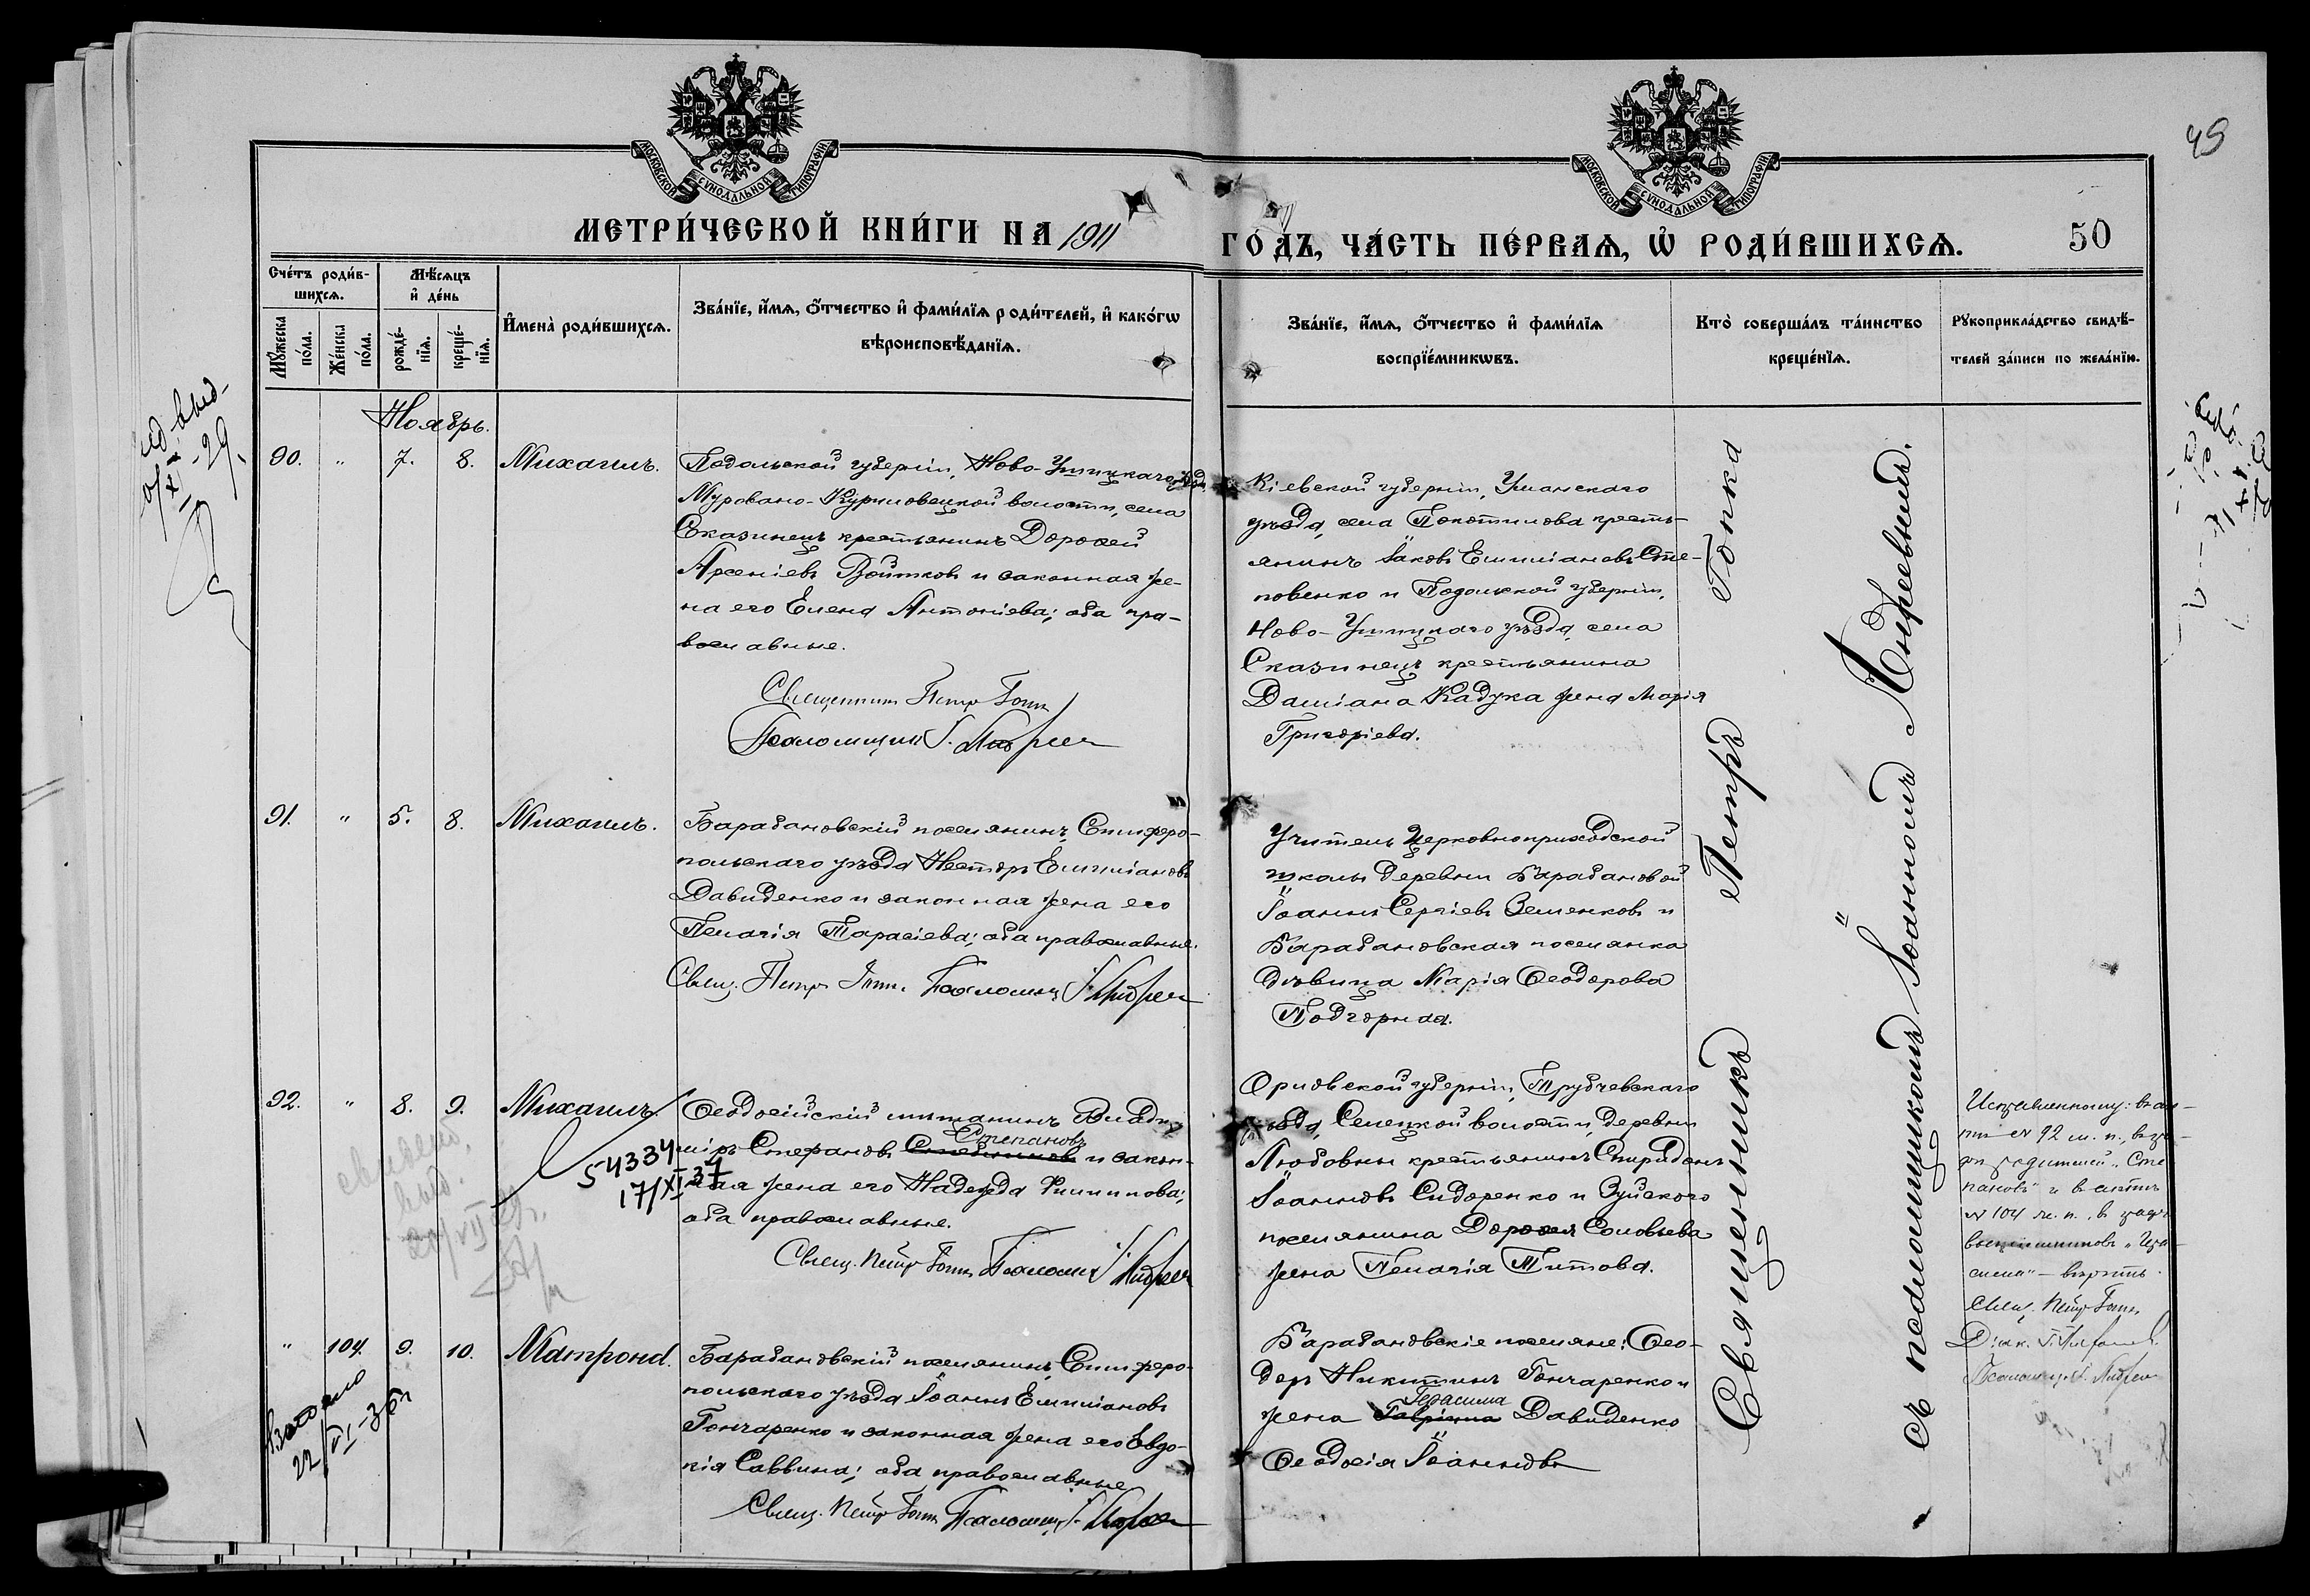 49
МОСКОВСКОЙ СѴНОДАЛЬНОЙ ТИПОГРАФІИ
МОСКОВСКОЙ СѴНОДАЛЬНОЙ ТИПОГРАФІИ
МЕТРИ́ЧЕСКОЙ КНИ́ГИ НА 1911
ГО́ДЪ, ЧА́СТЬ ПЕ́РВАѦ, Ѡ҆ РОДИ́ВШИХСѦ.
50
Сче́тъ роди́в-
шихсѧ.
Мѣ́сѧцъ
и҆ де́нь
Мꙋ́жеска
по́ла.
Же́нска
по́ла.
рожде́-
нїѧ.
креще́-
нїѧ.
И҆мена̀ роди́вшихсѧ.
Зва́нїе, и҆́мѧ, ѻ҆́тчество и҆ фами́лїѧ роди́телей, и҆ како́гѡ
вѣроисповѣ́данїѧ.
Зва́нїе, и҆́мѧ, ѻ҆́тчество и҆ фами́лїѧ
воспрїе́мникѡвъ.
Кто̀ соверша́лъ та́инство
креще́нїѧ.
Рꙋкоприкла́дство свидѣ́-
телей за́писи по жела́нїю.
Ноябрь.
90. " 7. 8. Михаилъ.
Подольской губерніи, Ново-Ушицкаго уѣзда,
Муровано-Куриловецкой волости, села
Сказинецъ крестьянинъ Дорофей
Арсеніевъ Войтковъ и законная же-
на его Елена Антоніева; оба пра-
вославные.
Священникъ Петръ Гопка
Псаломщикъ І. Андреев
Кіевской губерніи, Уманскаго
уѣзда, села Покотилова кресть-
янинъ Іаковъ Емиліановъ Сте-
повенко и Подольской губерніи,
Ново-Ушицкаго уѣзда, села
Сказинецъ крестьянина
Даміана Кадука жена Марія
Григоріева.
91. " 5. 8. Михаилъ.
Барабановскій поселянинъ, Симферо-
польскаго уѣзда Несторъ Емиліановъ
Давиденко и законная жена его
Пелагія Тарасіева; оба православные.
Свящ. Петръ Гопка. Псаломщ. І. Андреев
Учитель Церковноприходской
школы деревни Барабановой
Іоаннъ Сергіевъ Земенковъ и
Барабановская поселянка
дѣвица Марія Ѳеодорова
Подгорная.
92. " 8. 9. Михаилъ.
Ѳеодосійскій мѣщанинъ Влади-
Степановъ
міръ Стефановъ и закон-
ная жена его Надежда Филиппова;
оба православные.
Свящ. Петръ Гопка Псаломщ. І. Андреев
54334
17/XI 37
Орловской губерніи, Трубчевскаго
уѣзда, Селецкой волости, деревни
Любовны крестьянинъ Спиридонъ
Іоанновъ Сидоренко и Зуйскаго
поселянина Дорофея Соловьева
жена Пелагія Титова.
Исправленному: въ ак-
тѣ № 92 м. п., въ гра-
фѣ родителей "Сте
пановъ" и въ актѣ
№ 104 ж. п., в графѣ
воспріемниковъ "Гера-
сима" – вѣрить.
Свящ. Петръ Гопка
Псаломщ. І. Андреев
" 104. 9. 10. Матрона.
Барабановскій поселянинъ, Симферо-
польскаго уѣзда Іоаннъ Емиліановъ
Гончаренко и законная жена его Евдо-
кія Саввина; оба православные
Свящ. Петръ Гопка Псаломщ. І. Андреев
22/VI-36г
Барабановскіе поселяне: Ѳео-
доръ Никитинъ Гончаренко и
Герасима
жена Давиденко
Ѳеодосія Іоаннова
Священникъ Петръ Гопка
съ псаломщикомъ Іоанномъ Андреевымъ.